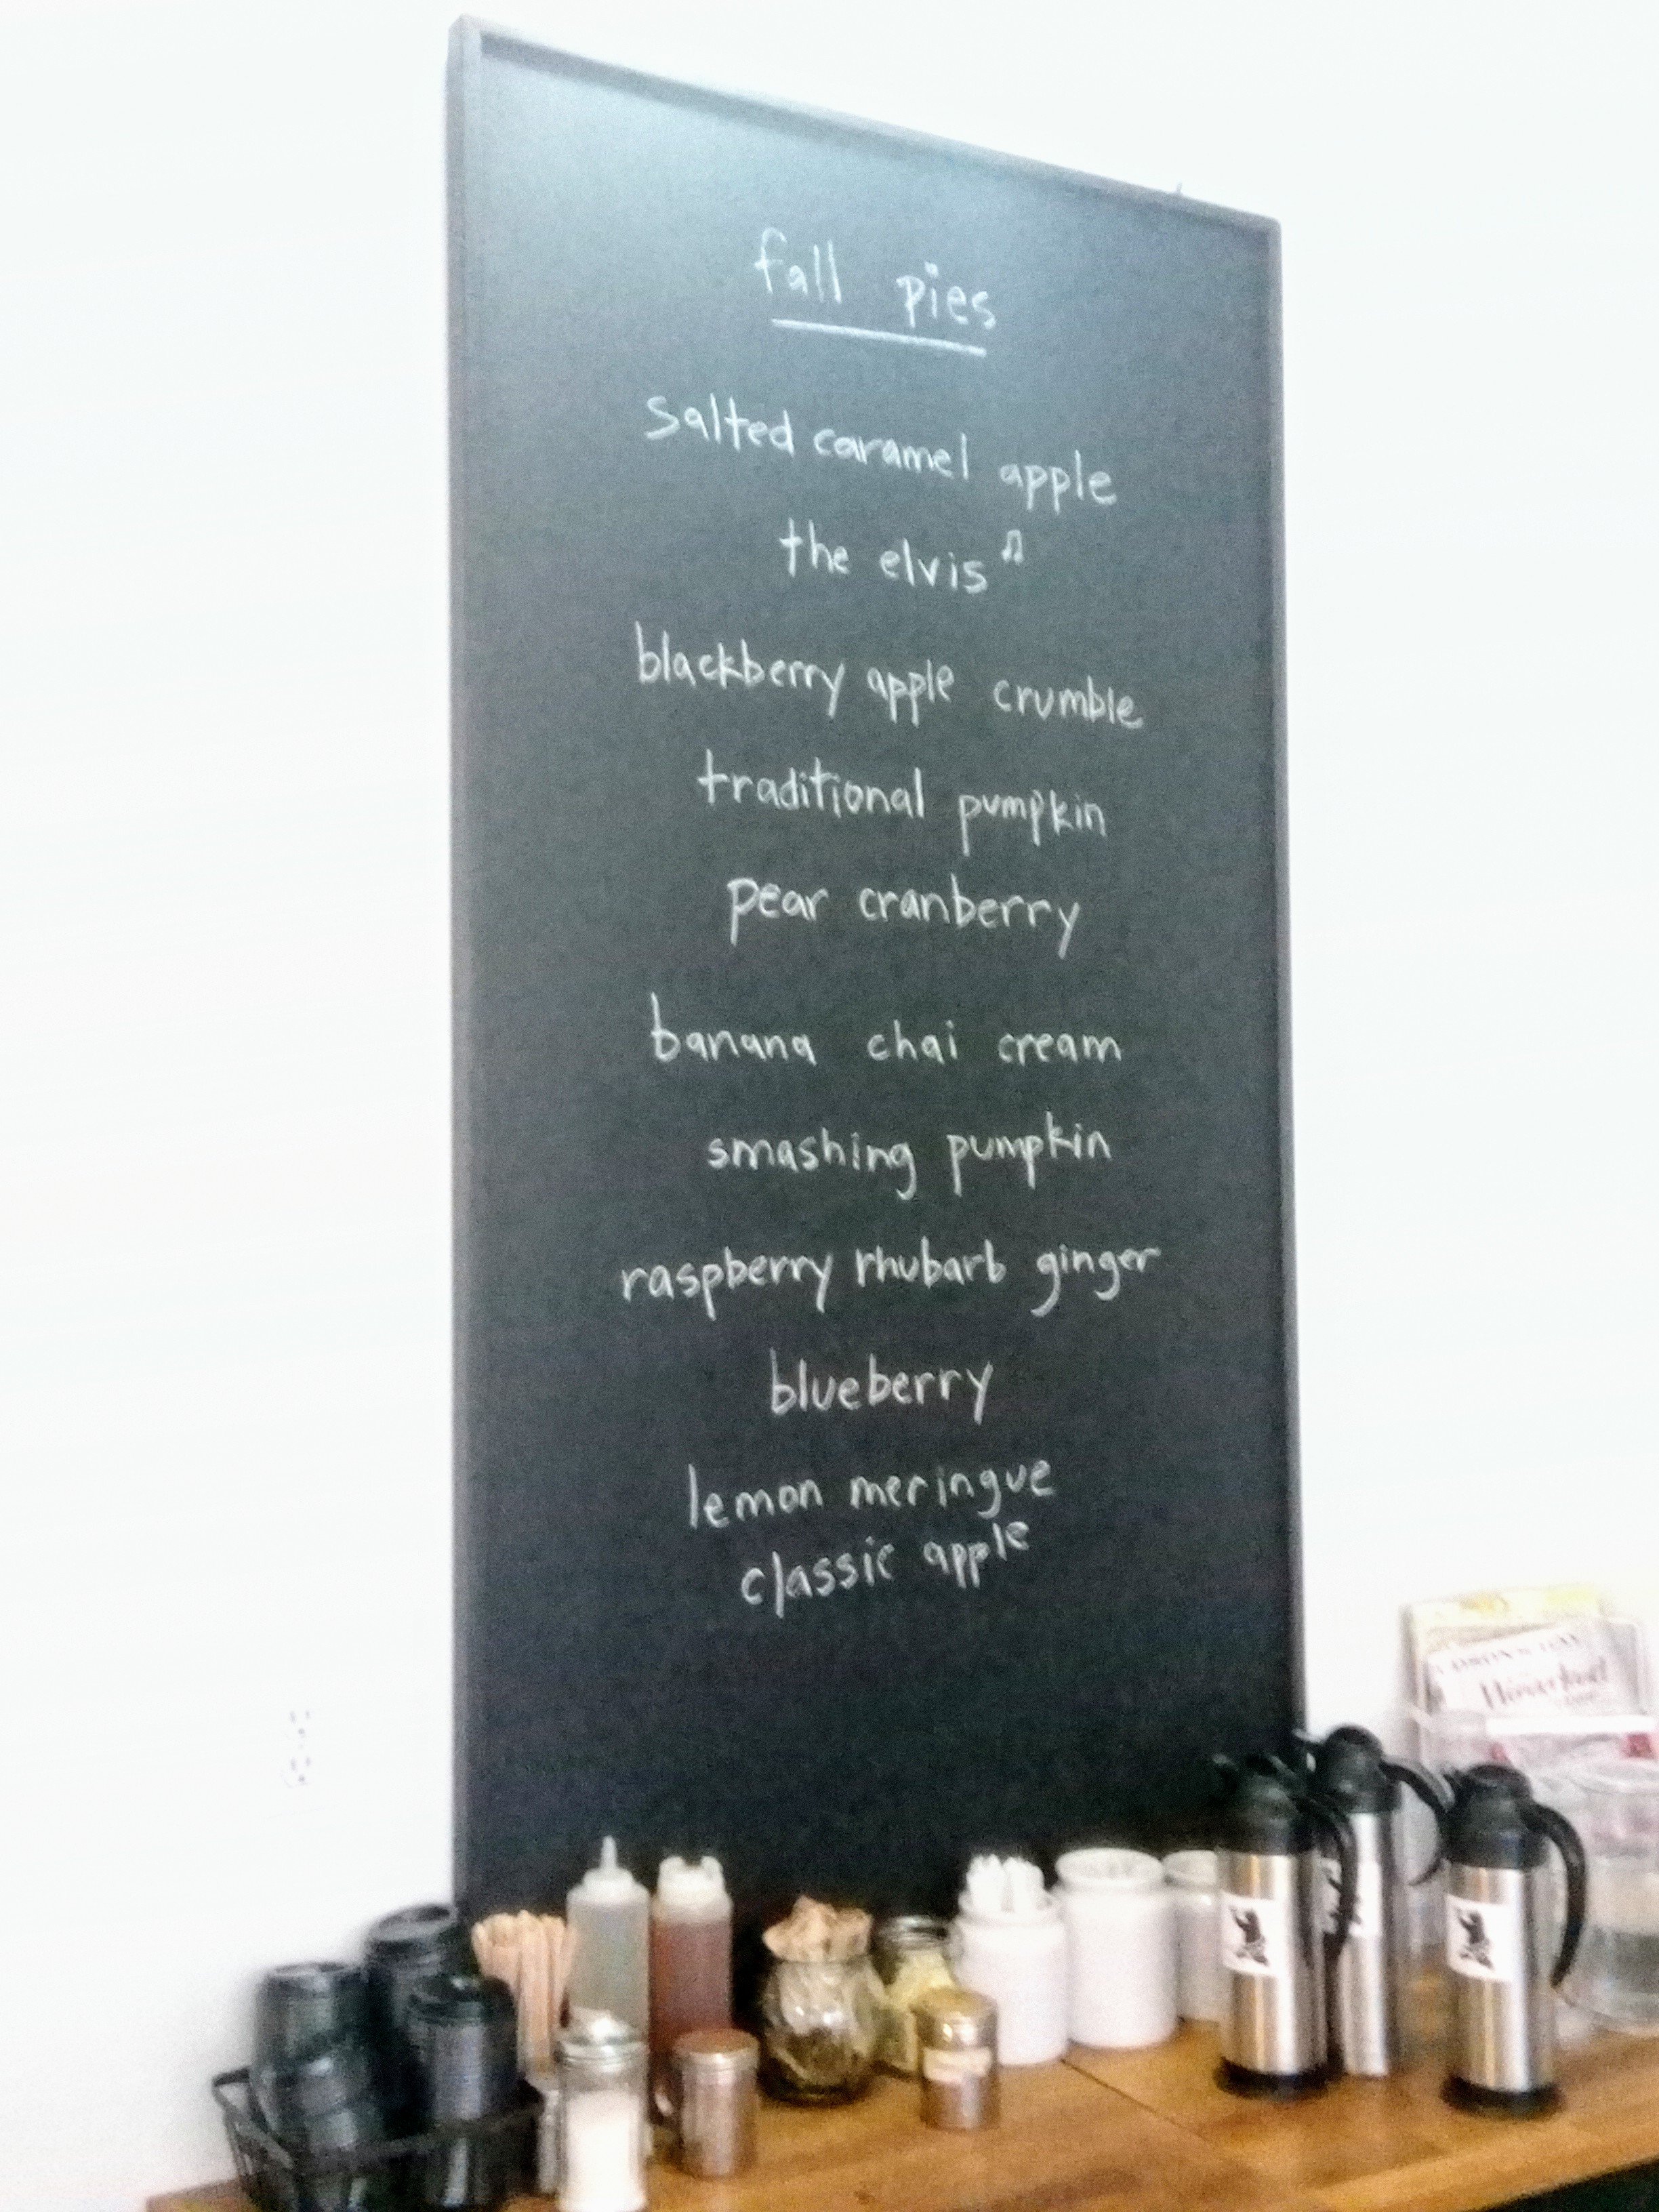 fall pies
salted caramel apple
the elvis ♫
blackberry apple crumble
traditional pumpkin
pear cranberry
banana chai cream
smashing pumpkin
raspberry rhubarb ginger
blueberry
lemon meringue
classic apple